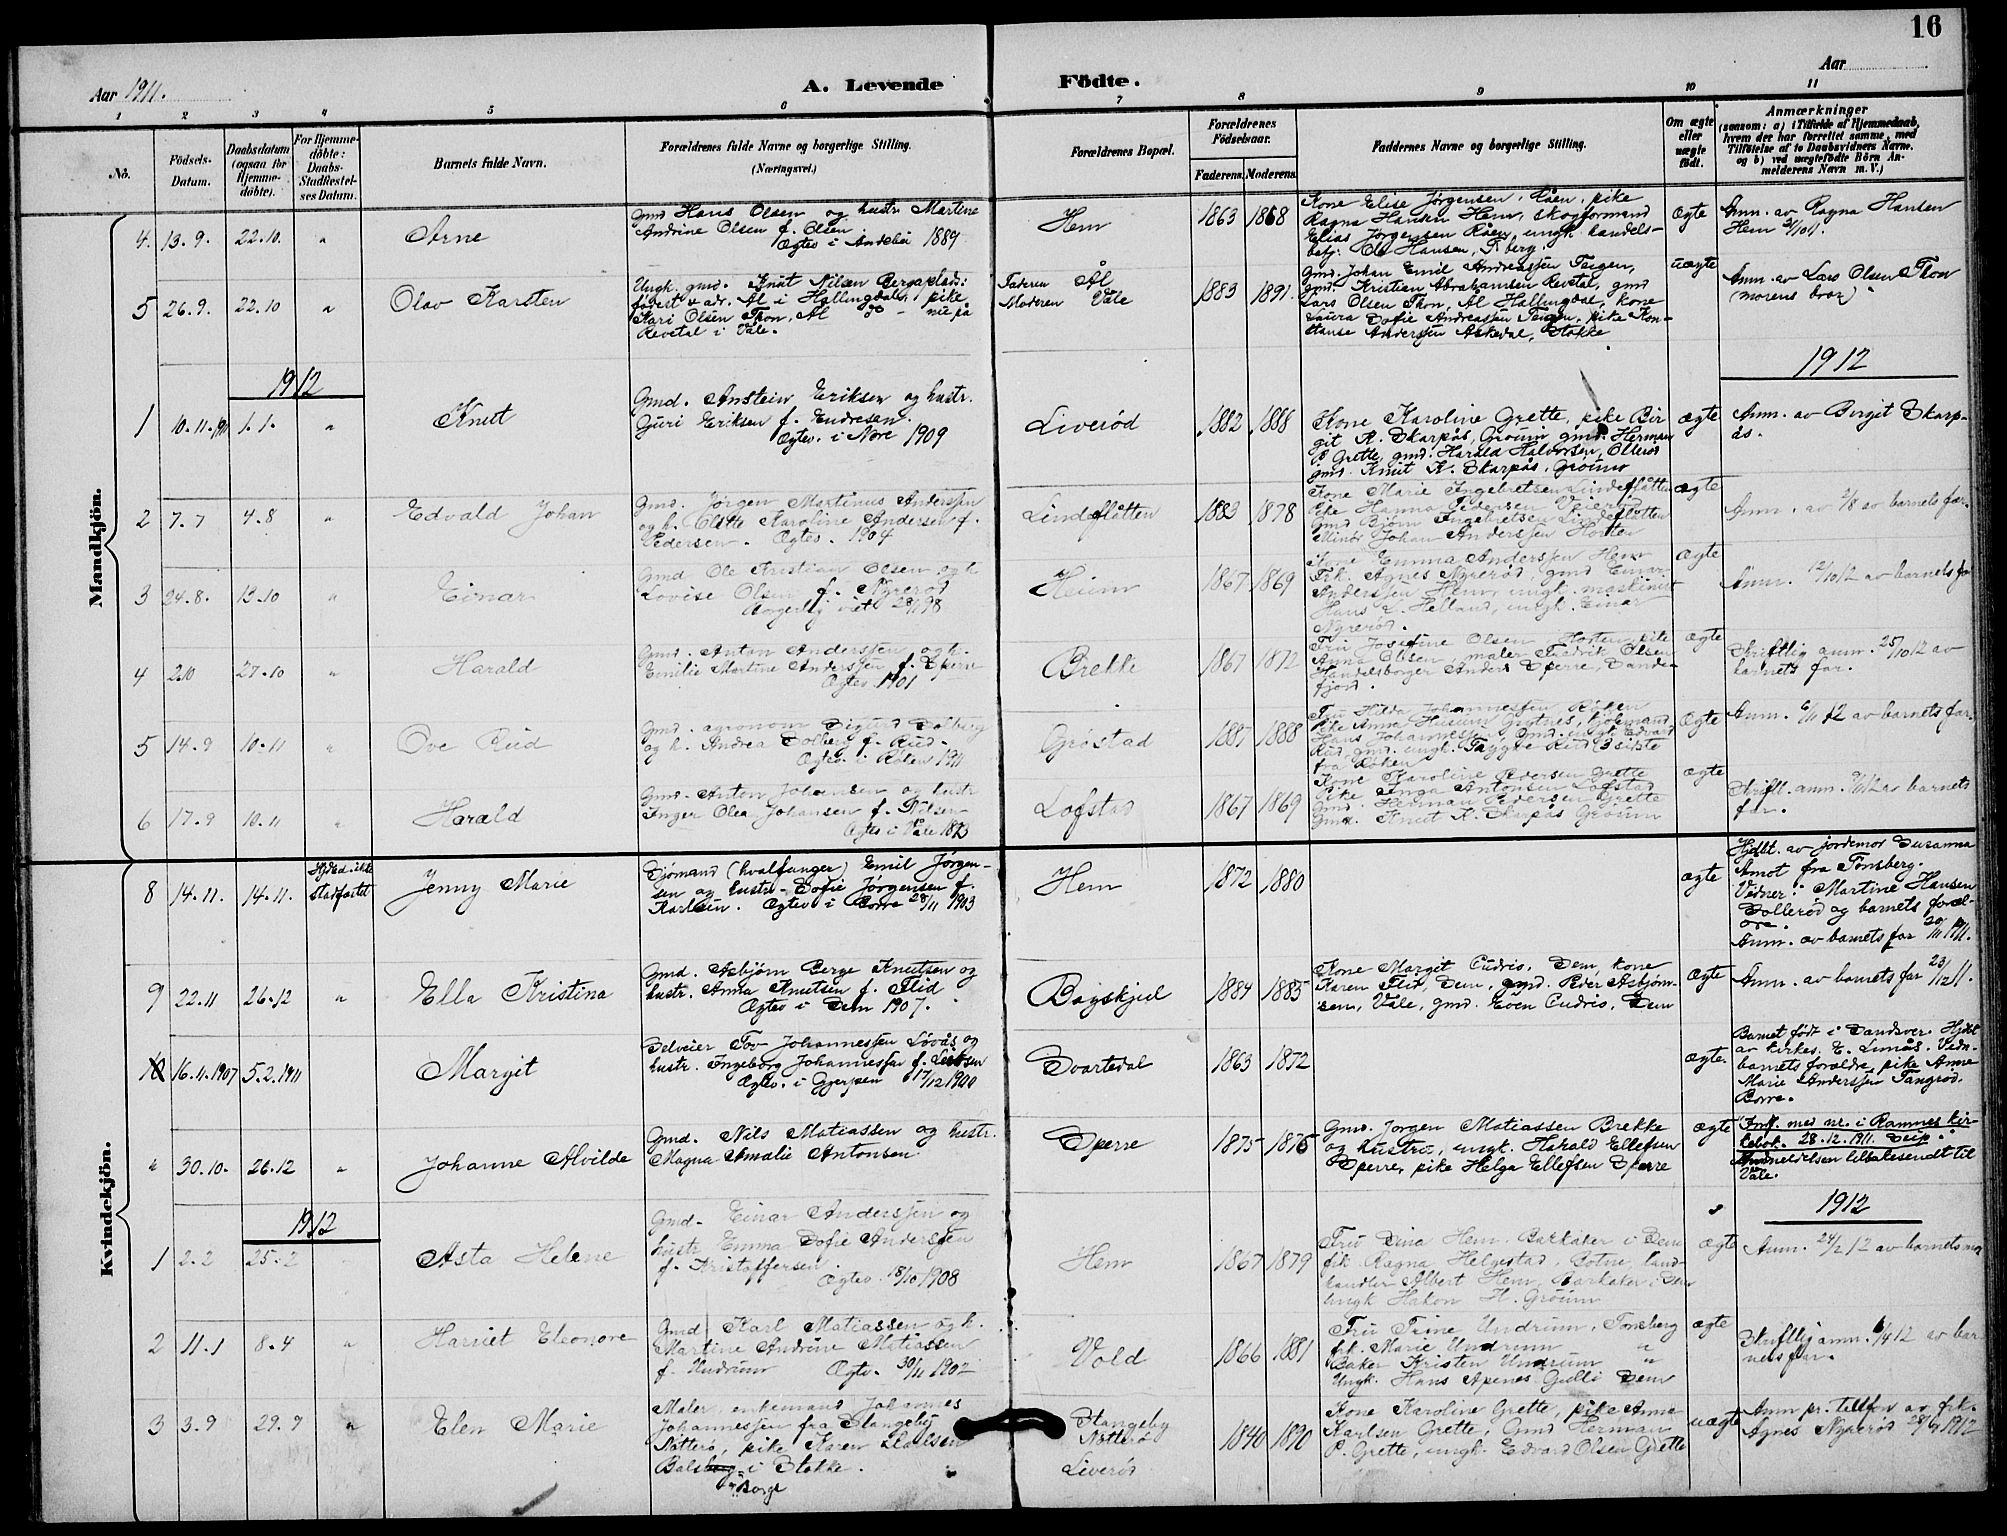 16
Aar 1911.
A. Levende Födte.
Aar
1 2 3 4 5 6 7 8 9 10 11
No.
Födsels-Datum.
Daabsdatum (ogsaa for Hjemme-döbte).
For Hjemme-döbte: Daabs-Stadfæstel-ses Datum.
Barnets fulde Navn.
Forældrenes fulde Navne og borgerlige Stilling.
(Næringsvei.)
Forældrenes Bopæl.
Forældrenes Födselsaar.
Faderens. Moderens.
Faddernes Navne og borgerlige Stilling.
Om ægte eller uægte födt.
Anmærkninger
(saasom: a) i Tilfælde af Hjemmedaab, hvem der har forrettet samme, med Tilföielse af to Daabsvidners Navne, og b) ved uægtefödte Börn Anmelderens Navn m. V.)
Mandkjön.
4. 13.9. 22.10. " Arne
Gmd Hans Olsen og hustr. Martine
Andrine Olsen f. Olsen
Ægtev. i Andebu 1889
Hem 1863 1868
Kone Elise Jørgensen, Råen, pike
Ragna Hansen Hem, skogformand
Elias Jørgensen Råen, ungk. handels-
betj. Ole Hansen, T.berg.
ægte
Anm. av Ragna Hansen
Hem
5 26.9. 22.10 " Olav Karsten
Ungk. gmd. Knut Nilsen Bergaplads:
Ål i Hallingdal, pike
Kari Olsen Thon, Ål do - nu på
Revetal i Våle.
Faderen Ål
Moderen Våle
1883 1891
Gmd. Johan Emil Andreassen Teigen,
gmd. Kristian Abrahamsen Revetal, gmd
Lars Olsen Thon, Ål Hallingdal, kone
Laura Sofie Andreassen Teigen, pike Kon-
stanse Andersen Askedal, Stokke
uægte
Anm. av Lars Olsen Thon
(morens bror)
1912
1912
1 10.11.1911 1.1. " Knut
Gmd. Anstein Eriksen og hustr.
Guri Eriksen f. Endresen.
Ægtev. i Nore 1909
Liverød 1882 1888
Kone Karoline Grette, pike Bir-
git K. Skarpås, Grøum gmd. Herman
P. Grette, gmd. Harald Halvorsen, Ollerød
gmd. Knut K. Skarpås, Grøum
ægte
Anm. av Birgit Skarp-
ås.
2 7.7 4.8 " Edvald Johan
Gmd. Jørgen Martinus Anderssen
og h. Olette Karoline Andersen f.
Pedersen. Ægtev. 1904
Lindeflåtten 1883 1878
Kone Marie Ingebretsen Lindeflåtten
Pike Hanna Pedersen
Gmd Bjørn Ingebretsen Lindeflåtten
Minør Johan Anderssen Horten
ægte
Anm. av 2/8 av barnets far.
3 24.8. 13.10 " Einar
Gmd Ole Kristian Olsen og h.
Lovise Olsen f. Nyrerød
Borgerlig viet
Heim 1867 1869
Kone Emma Anderssen Hem
Frk. Agnes Nyrerød, gmd Einar
Anderssen Hem, ungk. maskinist
Hans L. Helland, ungk. Einar
Nyrerød.
ægte
Anm. 12/10 12 av barnets far
4 2.10 27.10 " Harald
Gmd. Anton Anderssen og h.
Emilie Martine Anderssen f. Sperre
Ægtev. 1901
Brekke 1867 1872
Fru Josefine Olsen, Horten, pike
Anna Olsen, maler Fredrik Olsen
Handelsborger Anders Sperre, Sande-
fjord.
ægte
Skriftlig anm. 25/10 12 av
barnets far.
5 14.9 10.11 " Ove Rud
Gmd. agronom Sigurd Solberg
og h. Andrea Solberg f. Rud.
Ægtev. i Røken 1911
Grøstad 1887 1888
Fru Hilda Johannessen Røken
Pike Anna Husum Grytnes,
Hans Johannessen, Gmd. ungk. Edvard
Rud, gmd. ungk. Tryggve Rud (3 siste
fra Røken
Ægte
Anm. 6/11 12 av barnets far.
6 17.9 10.11 " Harald
Gmd. Anton Johansen og hustr
Inger Olea Johansen f. Nilsen
Ægtev. i Våle 1893
Lofstad 1867 1869
Kone Karoline Pedersen Grette
Pike Inga Antonsen Lofstad
Gmd. Herman Pedersen Grette
Gmd. Knut K. Skarpås Grøum
ægte
Skriftl. anm. av barnets
far.
Kvindekjön.
8 14.11. 14.11. Hjd.ed. ikke stadfæstet Jenny Marie
Sjömand (hvalfanger) Emil Jørgen-
sen og hustr. Sofie Jørgensen f.
Karlsen. Ægtev. i Borre 28/11 1903
Hem 1872 1880
ægte
Hjdbt. av jordemor Susanna
Åmot fra Tønsberg.
Vidner: Martine Hansen
Sollerød og barnets foræl-
dre.
Anm. av barnets far 20/11 1911.
9 22.11 26.12 " Ella Kristina
Gmd. Asbjørn Berge Knutsen og
hustr. Anna Knutsen f. Flid
Ægtev. i Sem 1907.
Bøyskjul 1884 1885
Kone Margit Oudris, Sem, kone
Karen Flid, Sem, gmd. Peder Asbjørn-
sen, Våle, gmd. Even Oudris, Sem
ægte
Anm. av barnets far 23/12 11.
10 16.11.1907 5.2.1911 Margit
Selveier Tov Johannessen Løvås og
hustr. Ingeborg Johannessen f.
Ægtev. i Gjerpen 17/12 1900
Svartedal 1863 1872
ægte.
Barnet født i Sandsver. Hjdbt
av kirkes. E. Limås. Vidn.
barnets forældre, pike Anne
Marie Anderssen Tangrød,
Borre.
" 30.10. 26.12 " Johanne Alvilde
Gmd. Nils Matiassen og hustr.
Magna Amalie Antonsen
Sperre 1875 1875
Gmd. Jørgen Matiassen Brekke
og hustru, ungk. Harald Ellefsen
Sperre, pike Helga Ellefsen Sperre
ægte
Innf. med nr. i Ramnes kir-
kebok. 28.12.1911. Seip.
Andmeldelsen tilbakesendt til
Våle.
1912
1912
1 2.2 25.2 Asta Helene
Gmd. Einar Anderssen og
hustr. Emma Sofie Anderssen
f. Kristoffersen
Ægtev. 18/10 1908
Hem 1867 1879
Fru Dina Hem, Barkåker i Sem
frk. Ragna Helgestad, Botne, land-
handler Albert Hem, Barkåker i Sem
ungk Håkon H. Grøum
ægte
Anm. 24/2 12 av barnets mor
2 11.1 8.4 " Harriet Eleonore
Gmd Karl Matiassen og h.
Martine Andrine Matiassen
f. Undrum Ægtev. 30/11 1902
Vold 1866 1881
Fru Trine Undrum, Tønsberg
frk. Marie Undrum "
Baker Kristen Undrum "
Ungk. Hans Apenes Gulli Sem
ægte
Skriftlig anm. 6/4 12 av bar-
nets far.
3 3.9 29.9 " Elen Marie
Maler, enkemand Johannes
Johannessen fra Stangeby
Nøtterø, pike Karen Karlsen
Bals i Stokke.
Borge
Stangeby
Nøtterø
Liverød
1840 1890
Kone Karoline Grette, pike Anna
Karlsen Grette, Gmd Herman
P. Grette, ungk. Edvard Olsen Grette
uægte
Anm pr. tellfon av frk.
Agnes Nyrerød 28/9 1912